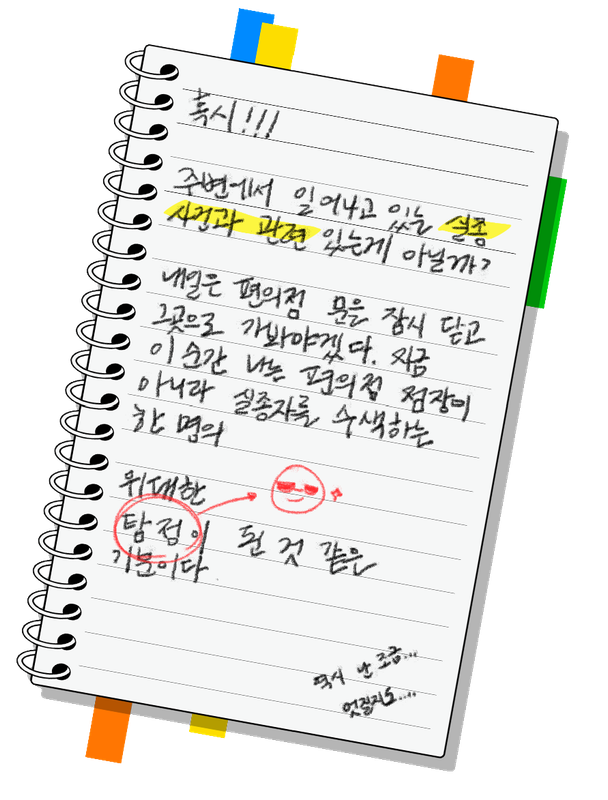 혹시!!!
주변에서 일어나고 있는 실종
사건과 관련 있는게 아닐까?
내일은 편의점 문을 잠시 닫고
그곳으로 가봐야겠다. 지금
이 순간 나는 편의점 점장이
아니라 실종자를 수색하는
한 명의
위대한
탐정이 된 것 같은
기분이다
역시 난 조금...
멋질지도....